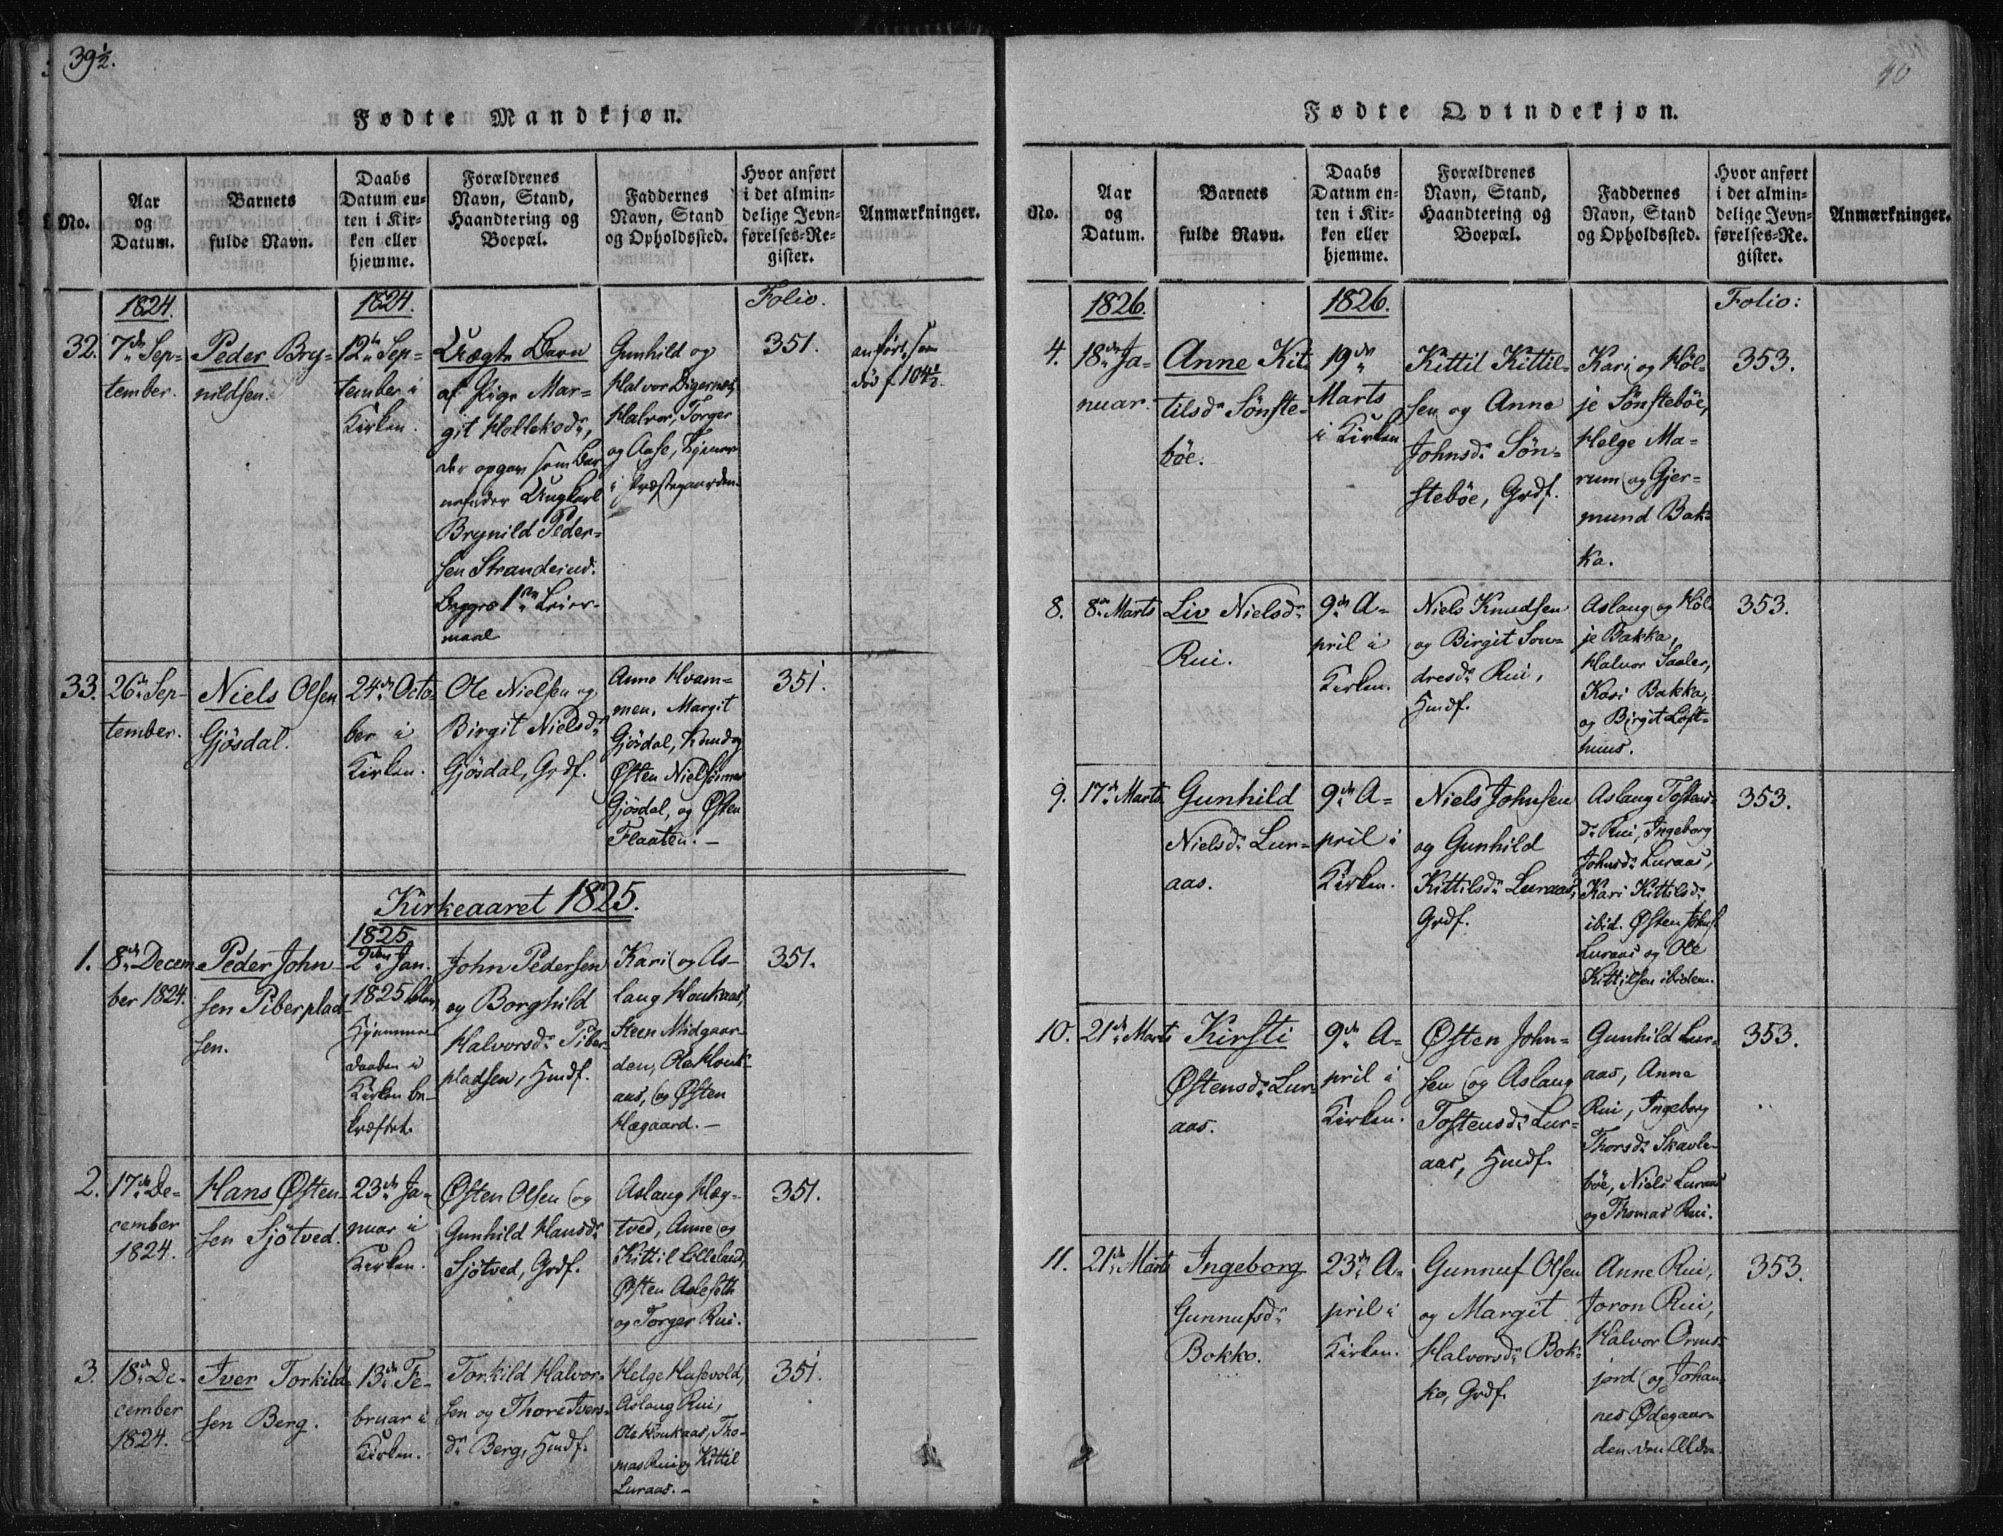 39½.
Fødte Mandkjøn.
No.
Aar
og
Datum.
Barnets
fulde Navn.
Daabs
Datum en-
ten i Kir-
ken eller
hjemme.
Forældrenes
Navn, Stand,
Haandtering og
Boepæl.
Faddernes
Navn, Stand
og Opholdssted.
Hvor anført
i det almin-
delige Jevn-
førelses-Re-
gister.
Anmærkninger.
1824.
1824.
Folio.
32.
7de Sep-
tember.
Peder Bry-
nildsen.
12te Sep-
tember i
Kirken.
Uægte Barn
af Pige Mar-
git Holleksdr,
der opgav som Bar
nefader Ungkarl
Brynild Peder-
sen Strandeind.
Begges 1ste Leier-
maal
Gunhild og
Halvor Digernæs,
Halvor, Torger
og Aase, Tjenere
i Præstegaarden.
351.
anført som
død f. 104½.
33.
26de Sep-
tember.
Niels Olsen
Gjösdal.
24de Octo-
ber i
Kirken.
Ole Nielsen og
Birgit Nielsdr
Gjösdal, Grdf.
Anne Hvam-
men, Margit
Gjösdal, Knud og
Østen Nielssönner
Gjösdal, og Østen
Flaaten. –
351.
Kirkeaaret 1825.
1.
8de Decem
ber 1824.
Peder John-
sen Piberplad-
sen.
1825
2den Jan.
1825 blev
Hjemme
daaben i
Kirken be-
kræftet.
John Pedersen
og Borghild
Halvorsdr Piber-
pladsen, Hmdf.
Kari og As-
laug Houkaas,
Steen Midgaar-
den, Ole Houk-
aas, og Østen
Hægaard. –
351.
2.
17de De-
cember
1824.
Hans Østen-
sen Sjötved.
23de Ja-
nuar i
Kirken.
Østen Olsen og
Gunhild Hansdr
Sjötved, Grdf.
Aslaug Hæg-
tved, Anne og
Kittil Lilleland,
Østen Aaslefoth
og Torger Rui.
351.
3.
18de De-
cember
1824.
Iver Torkild-
sen Berg.
13de Fe-
bruar i
Kirken.
Torkild Halvor-
sen og Thore Ivers-
dr Berg, Hmdf.
Helge Hasvold,
Aslaug Rui,
Ole Houkaas, Tho-
mas Rui og Kittil
Luraas. –
351.
40
Fødte Qvindekjøn.
No.
Aar
og
Datum.
Barnets
fulde Navn.
Daabs
Datum en-
ten i Kir-
ken eller
hjemme.
Forældrenes
Navn, Stand,
Haandtering og
Boepæl.
Faddernes
Navn, Stand
og Opholdssted.
Hvor anført
i det almin-
delige Jevn-
førelses-Re-
gister.
Anmærkninger.
1826.
1826.
Folio:
4.
18de Ja-
nuar.
Anne Kit-
tilsdr Sönste-
böe.
19de
Marts
i Kirken
Kittil Kittil-
sen og Anne
Johnsdr Sön-
steböe, Grdf.
Kari og Höl-
je Sönsteböe,
Helge Ma-
rum og Gjer-
mund Bak-
ka.
353.
8.
8de Marts
Liv Nielsdr
Rui.
9de A-
pril i
Kirken.
Niels Knudsen
og Birgit Son-
dresdr Rui,
Hmdf.
Aslaug og Höl-
je Bakka,
Halvor Saaler,
Kari Bakka
og Birgit Loft-
huus.
353.
9.
17de Marts
Gunhild
Nielsdr Lur-
aas.
9de A-
pril i
Kirken.
Niels Johnsen
og Gunhild
Kittilsdr Luraas,
Grdf.
Aslaug Tostens-
dr Rui, Ingeborg
Johnsdr Luraas,
Kari Kittilsdr
ibid. Østen Johns.
Luraas og Ole
Kittilsen ibidem.
353.
10.
21de Marts
Kirsti
Østensdr Lur-
aas.
9de A-
pril i
Kirken.
Østen John-
sen og Aslaug
Tostensdr Lur-
aas, Hmdf.
Gunhild Lur-
aas, Anne
Rui, Ingeborg
Thorsdr Skavle-
böe, Niels Luraas
og Thomas Rui.
353.
11.
21de Marts
Ingeborg
Gunnufsdr
Bokko.
23de A-
pril i
Kirken.
Gunnuf Olsen
og Margit
Halvorsdr Bok-
ko, Grdf.
Anne Rui,
Joron Rui,
Halvor Orms-
jord og Johan-
nes Ødegaar-
den den Ældre.
353.